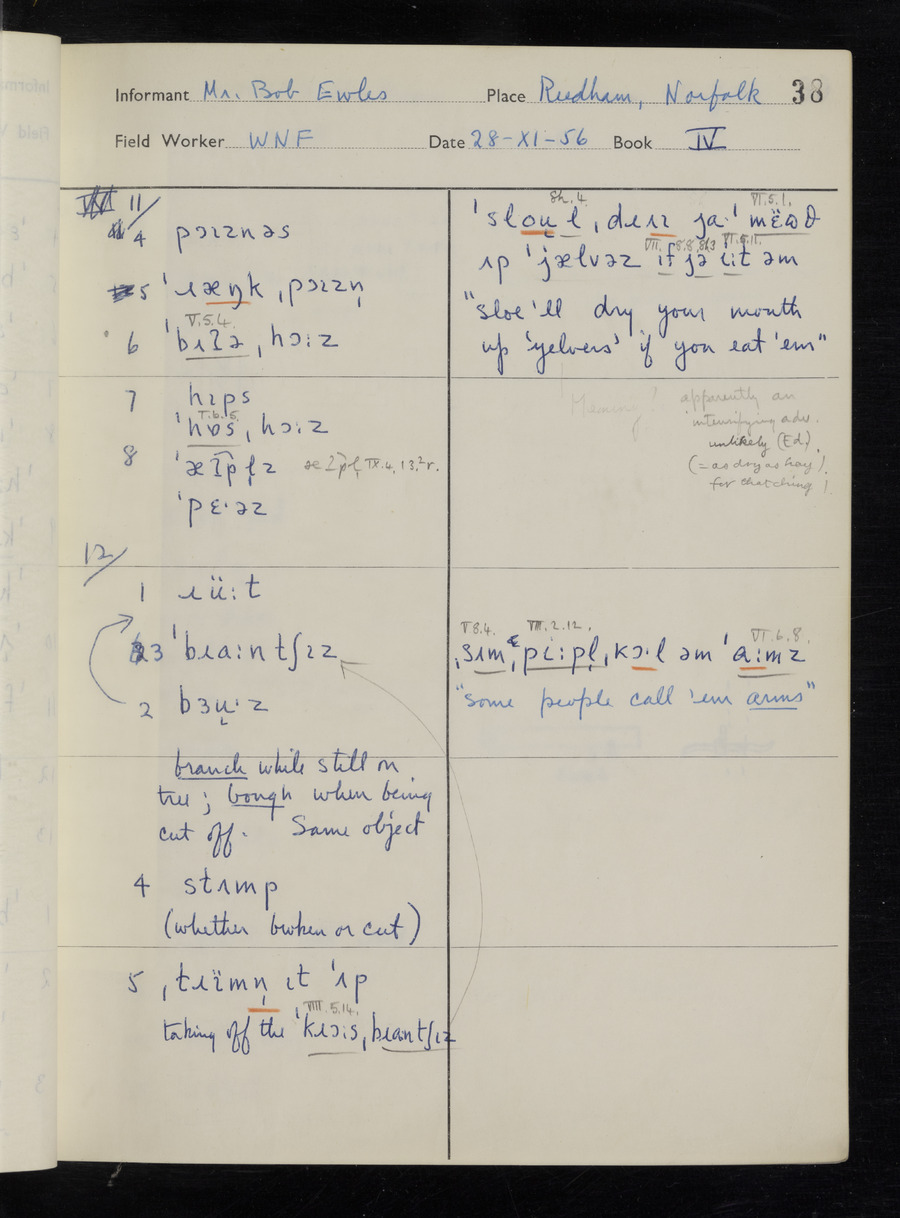 Informant Mr. Bob Ewles Place Reedham, Norfolk 38
Field Worker WNF Date 28-XI-56 Book IV
11/
4 pɔɪznəs
5 ˈɹæŋk ˌpɔɪzn̩
V.5.4.
6 ˈbɪʔə ˌhɔːz
7 hɪps
V.6.5.
ˈhɒs ˌhɔːz
8 ˈæʔpl̩z æʔpl̩ IX.4.13.²r.
ˈpɛˑəz
12/
1 ɹüːt
3 ˈbɹaːntʃɪz
2 bɜu̜ˑz
branch while still on
tree; bough when being
cut off. Same object
4 stʌmp
(whether broken or cut)
5 ˌtɹïmn̩ ɪt ˈʌp
VIII.5.14.
taking off the ˈkɹɔːs ˌbɹantʃɪz
8h.4. VI.5.1.
ˈsloul ˌdɹʌɪ jaˑ ˈmëəθ
VI.5.11.
ʌp ˈjælvəz ɪf jə iːt əm
"sloe'll dry your mouth
up 'yelvers' if you eat 'em"
Meaning? apparently an
intensifying adv.
unlikely (Ed.)
(= as dry as hay)
for thatching!
V.8.4. VIII.2.12. VI.6.8.
ˌsʌm ˌpiːpl̩ ˌkɔˑl əm ˈaːmz
"some people call 'em arms"